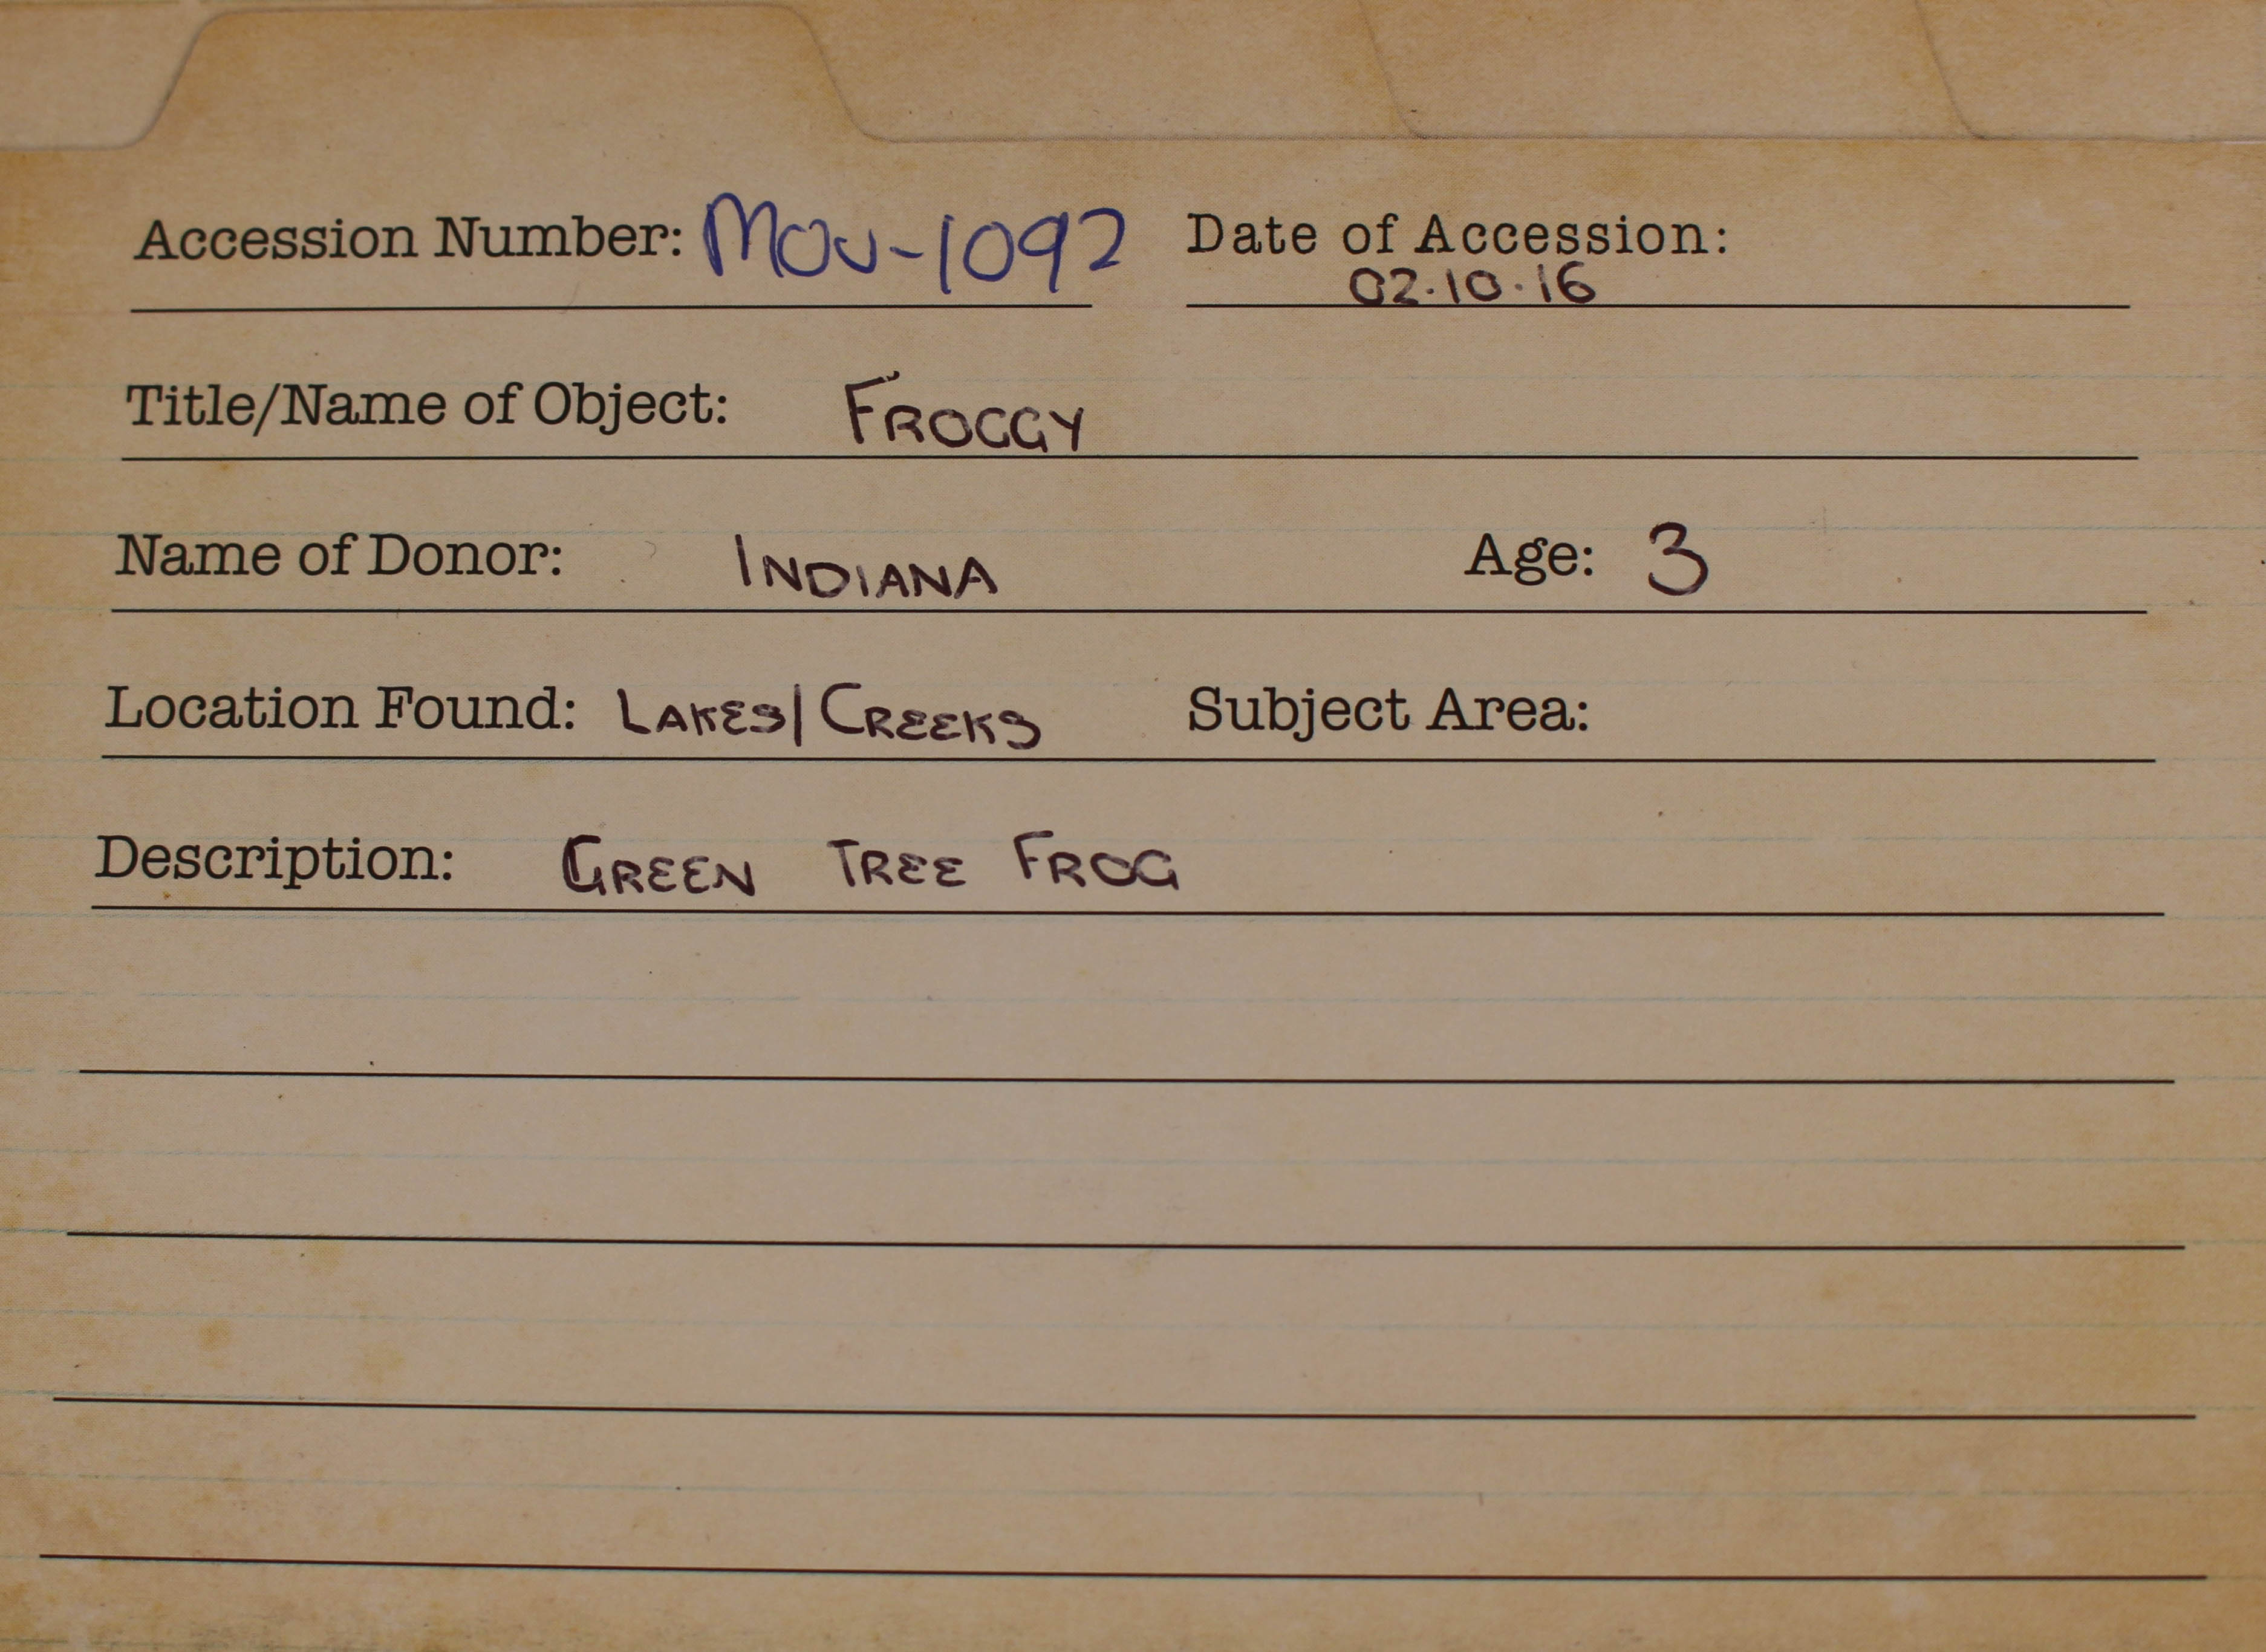 Accession Number: MOU-1092 Date of Accession:
02.10.16
Title/Name of Object: FROGGY
Name of Donor: INDIANA Age: 3
Location Found: LAKES/CREEKS Subject Area:
Description: GREEN TREE FROG